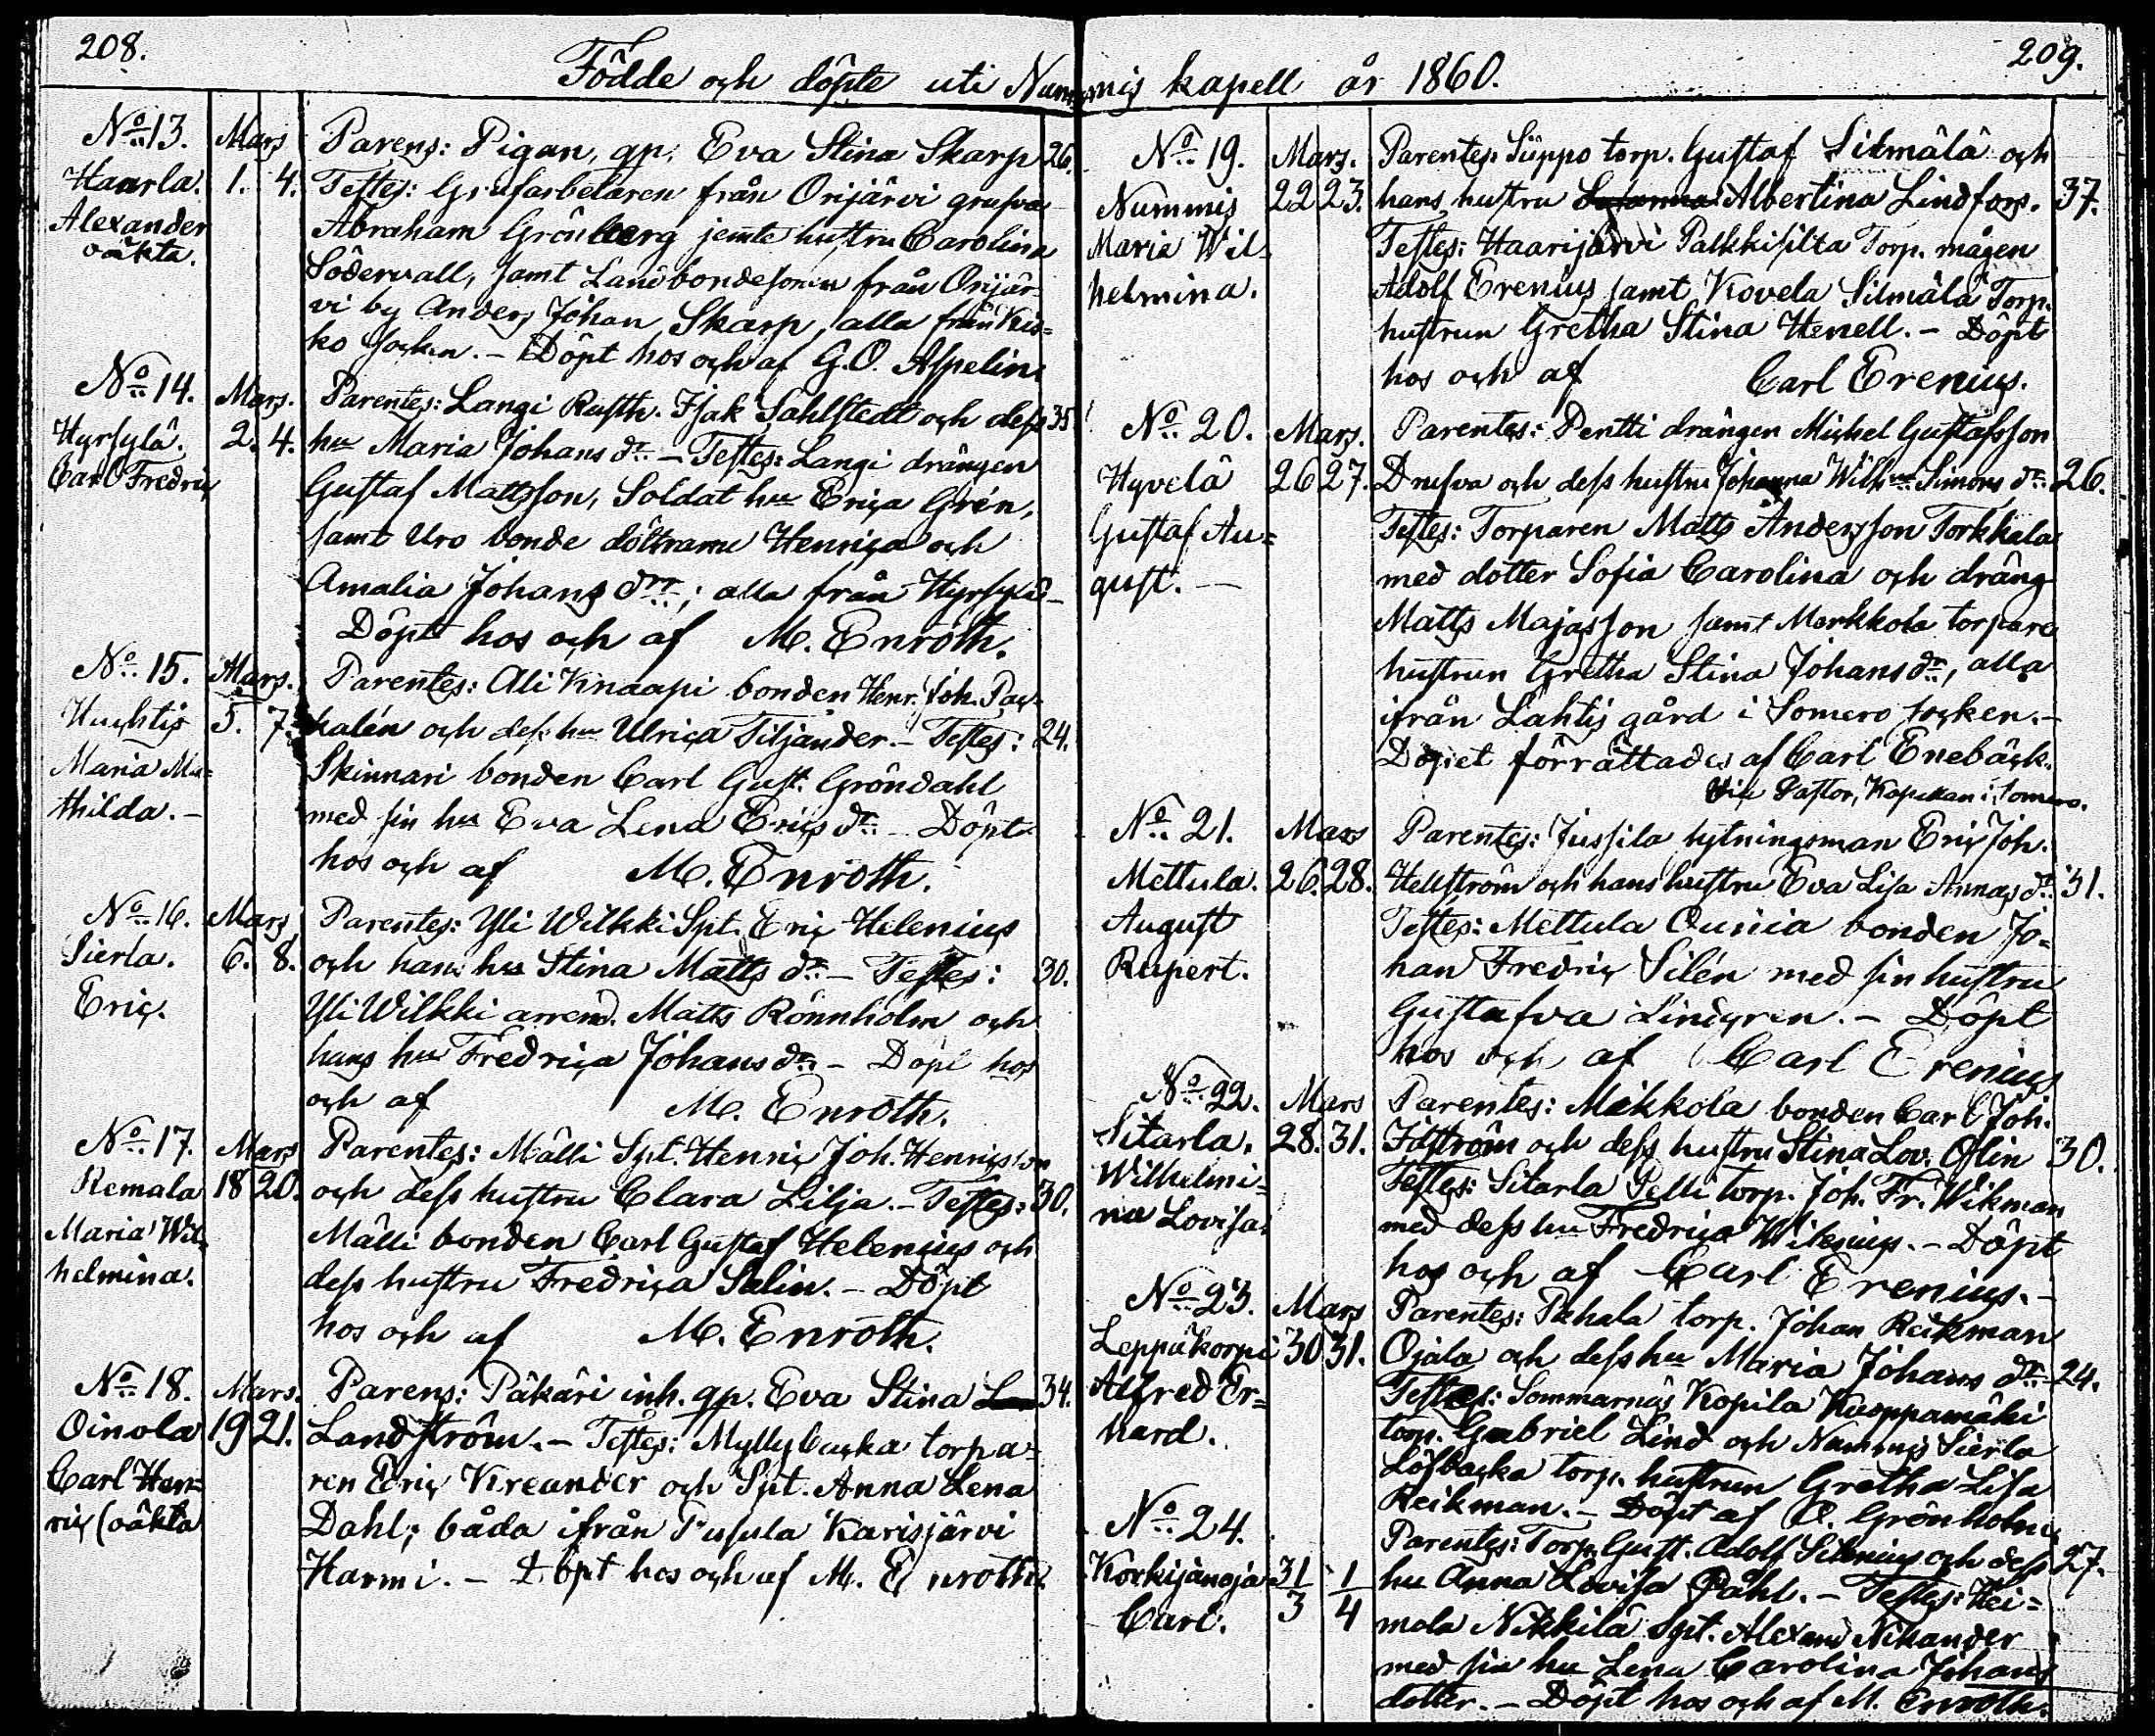 208.
209.
Födde och döpte uti Nummis kapell år 1860.
No 13. Mars Parens: Pigan, gp. Eva Stina Skarp 26.
Haarla. 1. 4. Testes: Grufarbetaren från Orijärvi grufva
Alexander Abraham Grönberg jemte hustru Carolina
oäkta. Södervall, samt Landbondesonen från Orijär-
vi by Anders Johan Skarp, alla från Kis=
ko socken. - Döpt hos och af G.O. Aspelin.
No 14. Mars. Parentes: Langi Rusth. Isak Sahlstedt och dess 35
Hyrsylä. 2. 4. hu Maria Johans dr. - Testes: Langi drängen
Carl Fredric Gustaf Mattsson, Soldat hu Erica Grén,
samt Uro bonde döttrarne Henrica och
Amalia Johans drr; alla från Hyrsylä -
Döpt hos och af M. Enroth.
No 15. Mars. Parentes: Ali Knaapi bonden Henr. Joh. Pac-
Huhtis 5. 7. halén och dess hu Ulrica Tiljander. - Testes: 24.
Maria Ma= Skinnari bonden Carl Gust. Gröndahl
thilda. - med sin hu Eva Lena Erics dr. - Döpt
hos och af M. Enroth.
No 16. Mars Parentes: Yli Wilkki Spt. Eric Helenius
Sierla. 6. 8. och hans hu Stina Matts dr. - Testes: 30.
Eric. Yli Wilkki arrend. Matts Rönnholm och
hans hu Fredrica Johans dr. - Döpt hos
och af M. Enroth.
No 17. Mars Parentes: Mälli Spt. Henric Joh. Henricsson
Remala 18 20. och dess hustru Clara Lilja. - Testes: 30.
Maria Wil= Mälli bonden Carl Gustaf Helenius och
helmina. dess hustru Fredrica Salin. - Döpt
hos och af M. Enroth.
No 18. Mars. Parens: Päkäri inh. gp. Eva Stina 34.
Oinola 19 21. Landström. - Testes: Myllybacka torpa=
Carl Hen= ren Eric Kreander och Spt. Anna Lena
ric (oäkta Dahl; båda ifrån Pusula Karisjärvi
Harmi. - Döpt hos och af M. Enroth.
No 19. Mars. Parentes: Süppo torp. Gustaf Silmälä och
Nummis 22 23. hans hustru Albertina Lindfors. 37.
Maria Wil= Testes: Haarijärvi Palkkisilta Torp. mågen
helmina. Adolf Erenius samt Kovela Silmälä Torp.
hustrun Gretha Stina Henell. - Döpt
hos och af Carl Erenius.
No 20. Mars. Parentes: Pentti drängen Michel Gustafsson
Hyvelä 26 27. Drufva och dess hustru Johanna Wilhna Simons dr. 26.
Gustaf Au= Testes: Torparen Matts Andersson Torkkala
gust. - med dotter Sofia Carolina och dräng
Matts Majasson samt Markkola torpare
hustrun Gretha Stina Johans dr, alla
ifrån Lahtis gård i Somero socken. -
Dopet förrättades af Carl Enebäck.
Vice Pastor, Kapellan i Somero.
No 21. Mars Parentes: Jussila hytningsman Eric Joh.
Mettula. 26. 28. Hellström och hans hustru Eva Lisa Annas dr. 31.
August Testes: Mettula Ounia bonden Jo=
Rupert. han Fredric Silén med sin hustru
Gustafva Lindgren. - Döpt
hos och af Carl Erenius
No 22. Mars Parentes: Mikkola bonden Carl Joh.
Sitarla. 28. 31. Idström och dess hustru Stina Lov. Oslin 30.
Wilhelmi= Testes: Sitarla Pelli torp. Joh. Fr. Wikman
na Lovisa. med dess hu Fredrica Wikenius. - Döpt
hos och af Carl Erenius. -
No 23. Mars Parentes: Pahala torp. Johan Reikman
Leppäkorpi 30 31. Ojala och dess hu Maria Johans dr. 24.
Alfred Er= Testes: Sommarnäs Kopila Kuoppamäki
hard. torp. Gabriel Lind och Nummis Sierla
Löfbacka torp. hustrun Gretha Lisa
Reikman. - Döpt af O. Grönholm
No 24. Parentes: Torp. Gust. Adolf Silenius och dess 27.
Korkijänoja 31/3 1/4 hu Anna Lovisa Påhl. - Testes: Hei=
Carl. mola Nikkilä Spt. Alexand Nikander
med sin hu Lena Carolina Johans
dotter. - Döpt hos och af M. Enroth.